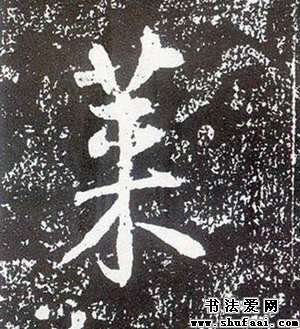 莱
书法爱网
www.shufaai.com